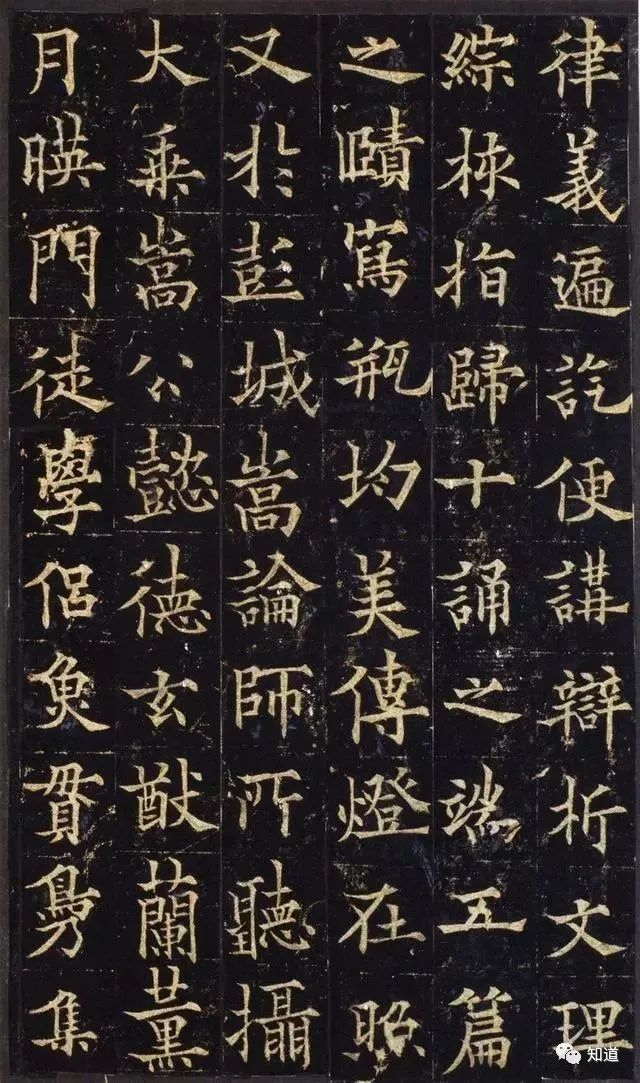 律義遍訖便講辯析文理
綜核指歸十誦之端五篇
之賾寫瓶均美傳燈在照
又於彭城嵩論師所聽攝
大乘嵩公懿德玄猷蘭薰
月暎門徒學侶魚貫鳧集
知道